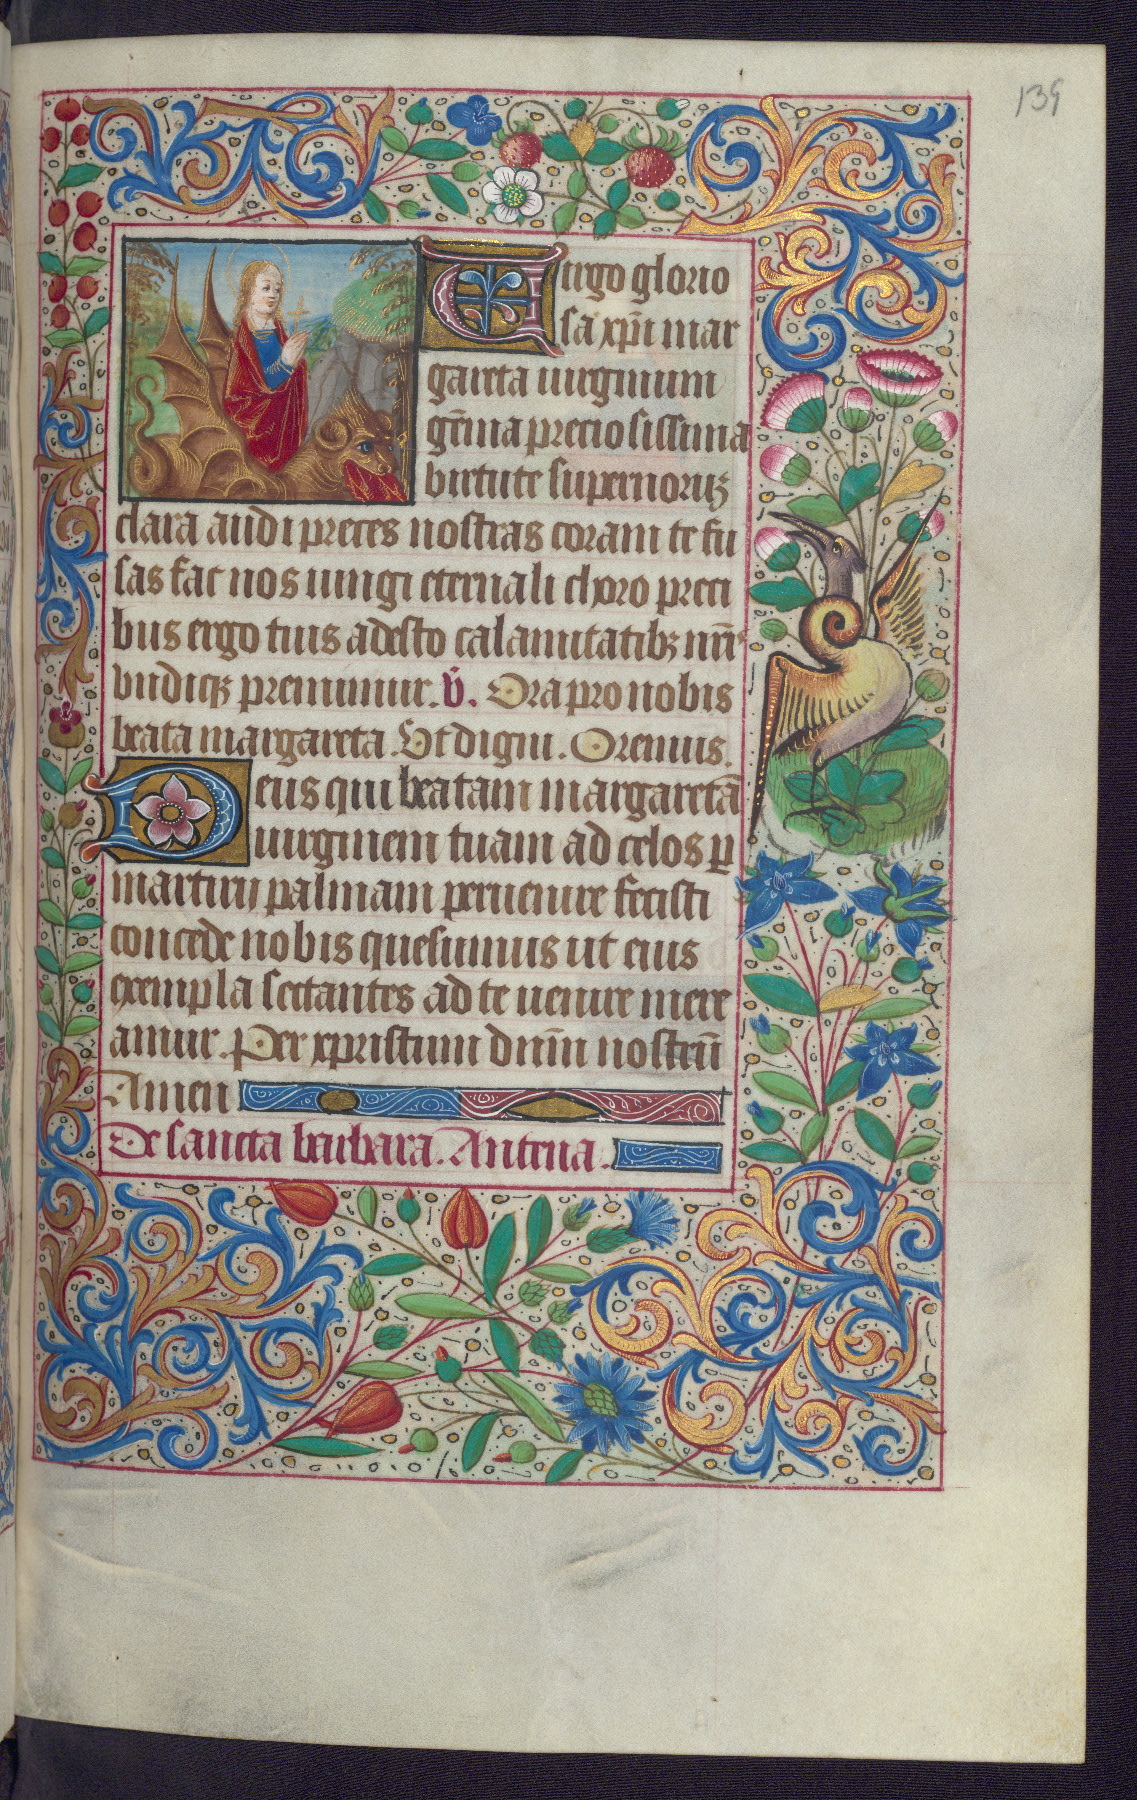 139
Virgo glorio
sa xp̄i mar
gareta uirginum
gēma preciosissima
virtute supernoruꝫ
clara audi preces nostras coram te fu
sas fac nos iungi eternali choro preci
bus ergo tuis adesto calamitatibꝫ nr̄is
vndiqꝫ premimur. V̄. Ora pro nobis
beata margareta. Vt digni. Oremus.
Deus qui beatam margaretā
uirginem tuam ad celos ꝑ
martirij palmam peruenire fecisti
concede nobis quesumus ut eius
exempla sectantes ad te uenire mere
amur. Per xpristum dn̄m nostrū
Amen
De sancta barbara. Antena.